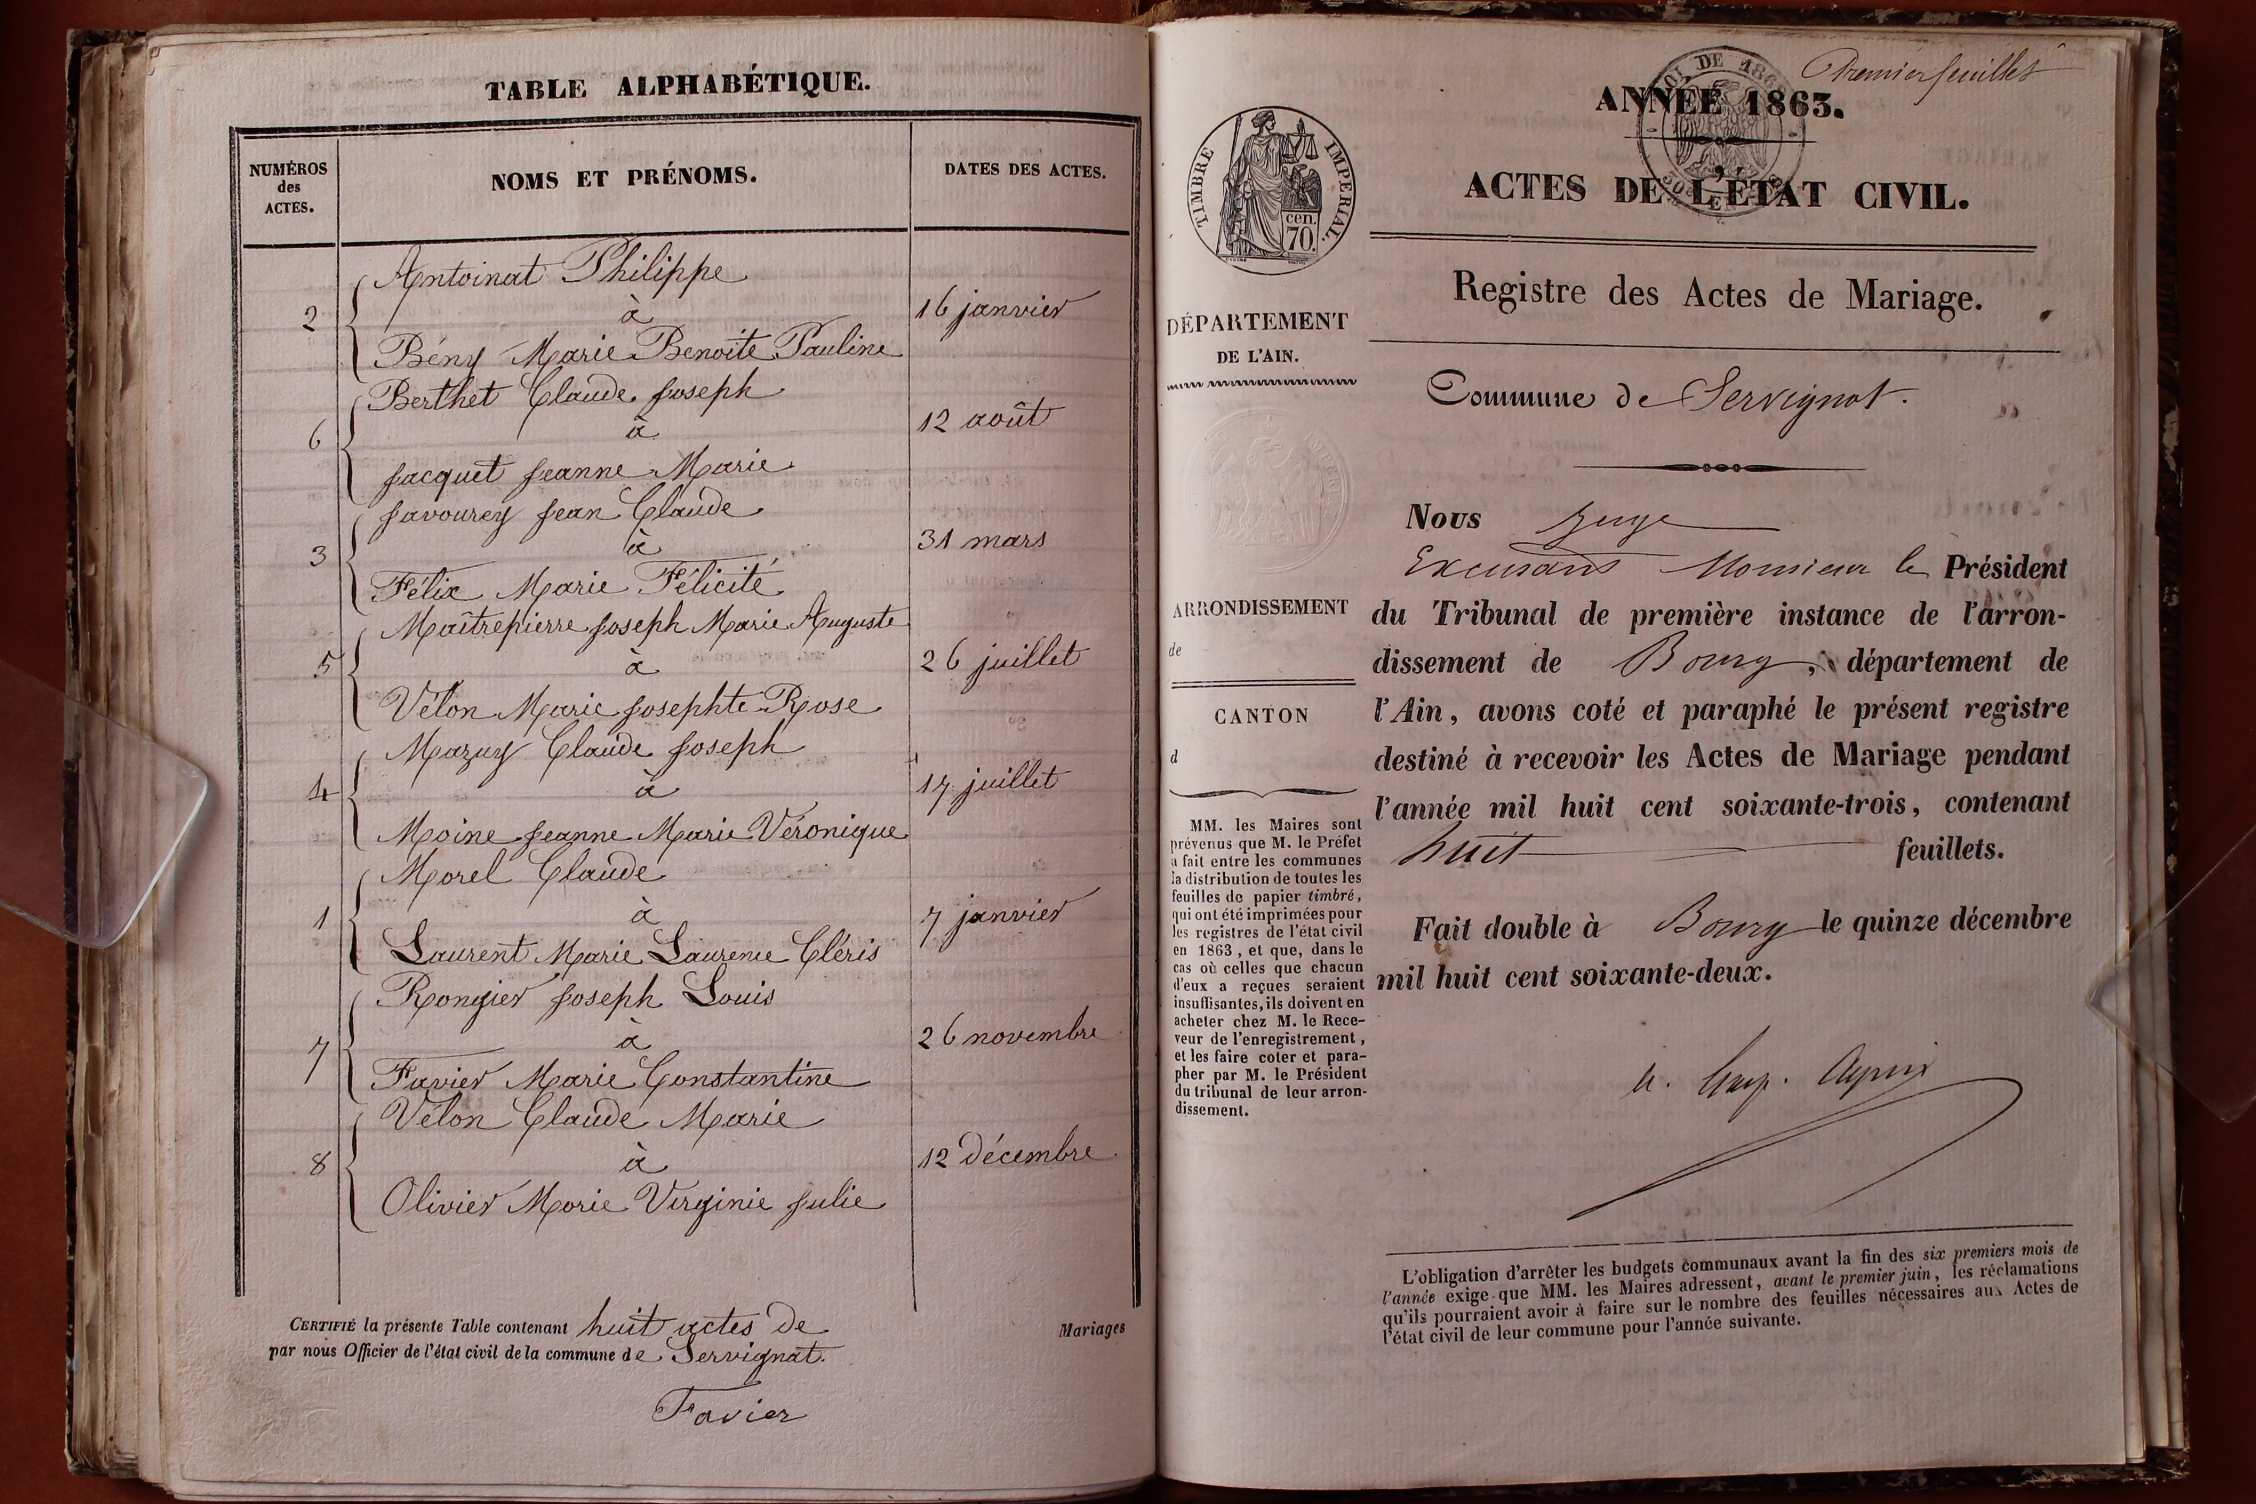 TABLE ALPHABÉTIQUE.
NUMÉROS
des
ACTES.
NOMS ET PRÉNOMS.
DATES DES ACTES.
Antoinat Philippe
2 à 16 janvier
Bény Marie Benoite Pauline
Berthet Claude Joseph
6 à 12 août
Jacquet Jeanne Marie
Javourey Jean Claude
3 à 31 mars
Félix Marie Félicité
Maîtrepierre Joseph Marie Auguste
5 à 26 juillet
Vélon Marie Josephte Rose
Mazuy Claude Joseph
4 à 17 juillet
Moine Jeanne Marie Véronique
Morel Claude
1 à 7 janvier
Laurent Marie Laurence Cléris
Rongier Joseph Louis
7 à 26 novembre
Favier Marie Constantine
Vélon Claude Marie
8 à 12 décembre
Olivier Marie Virginie Julie
CERTIFIÉ la présente Table contenant huit actes de Mariages
par nous Officier de l'état civil de la commune de Servignat.
Favier
Premier feuillet
ANNÉE 1863.
ACTES DE L'ÉTAT CIVIL.
TIMBRE IMPERIAL.
cen.
70.
Registre des Actes de Mariage.
DÉPARTEMENT
DE L'AIN.
Commune de Servignat.
ARRONDISSEMENT
de
CANTON
d
MM. les Maires sont
prévenus que M. le Préfet
a fait entre les communes
la distribution de toutes les
feuilles de papier timbré,
qui ont été imprimées pour
les registres de l'état civil
en 1863, et que, dans le
cas où celles que chacun
d'eux a reçues seraient
insuffisantes, ils doivent en
acheter chez M. le Rece-
veur de l'enregistrement,
et les faire coter et para-
pher par M. le Président
du tribunal de leur arron-
dissement.
Nous Juge
Excusant Monsieur le Président
du Tribunal de première instance de l'arron-
dissement de Bourg, département de
l'Ain, avons coté et paraphé le présent registre
destiné à recevoir les Actes de Mariage pendant
l'année mil huit cent soixante-trois, contenant
huit feuillets.
Fait double à Bourg le quinze décembre
mil huit cent soixante-deux.
L'obligation d'arrêter les budgets communaux avant la fin des six premiers mois de
l'année exige que MM. les Maires adressent, avant le premier juin, les réclamations
qu'ils pourraient avoir à faire sur le nombre des feuilles nécessaires aux Actes de
l'état civil de leur commune pour l'année suivante.